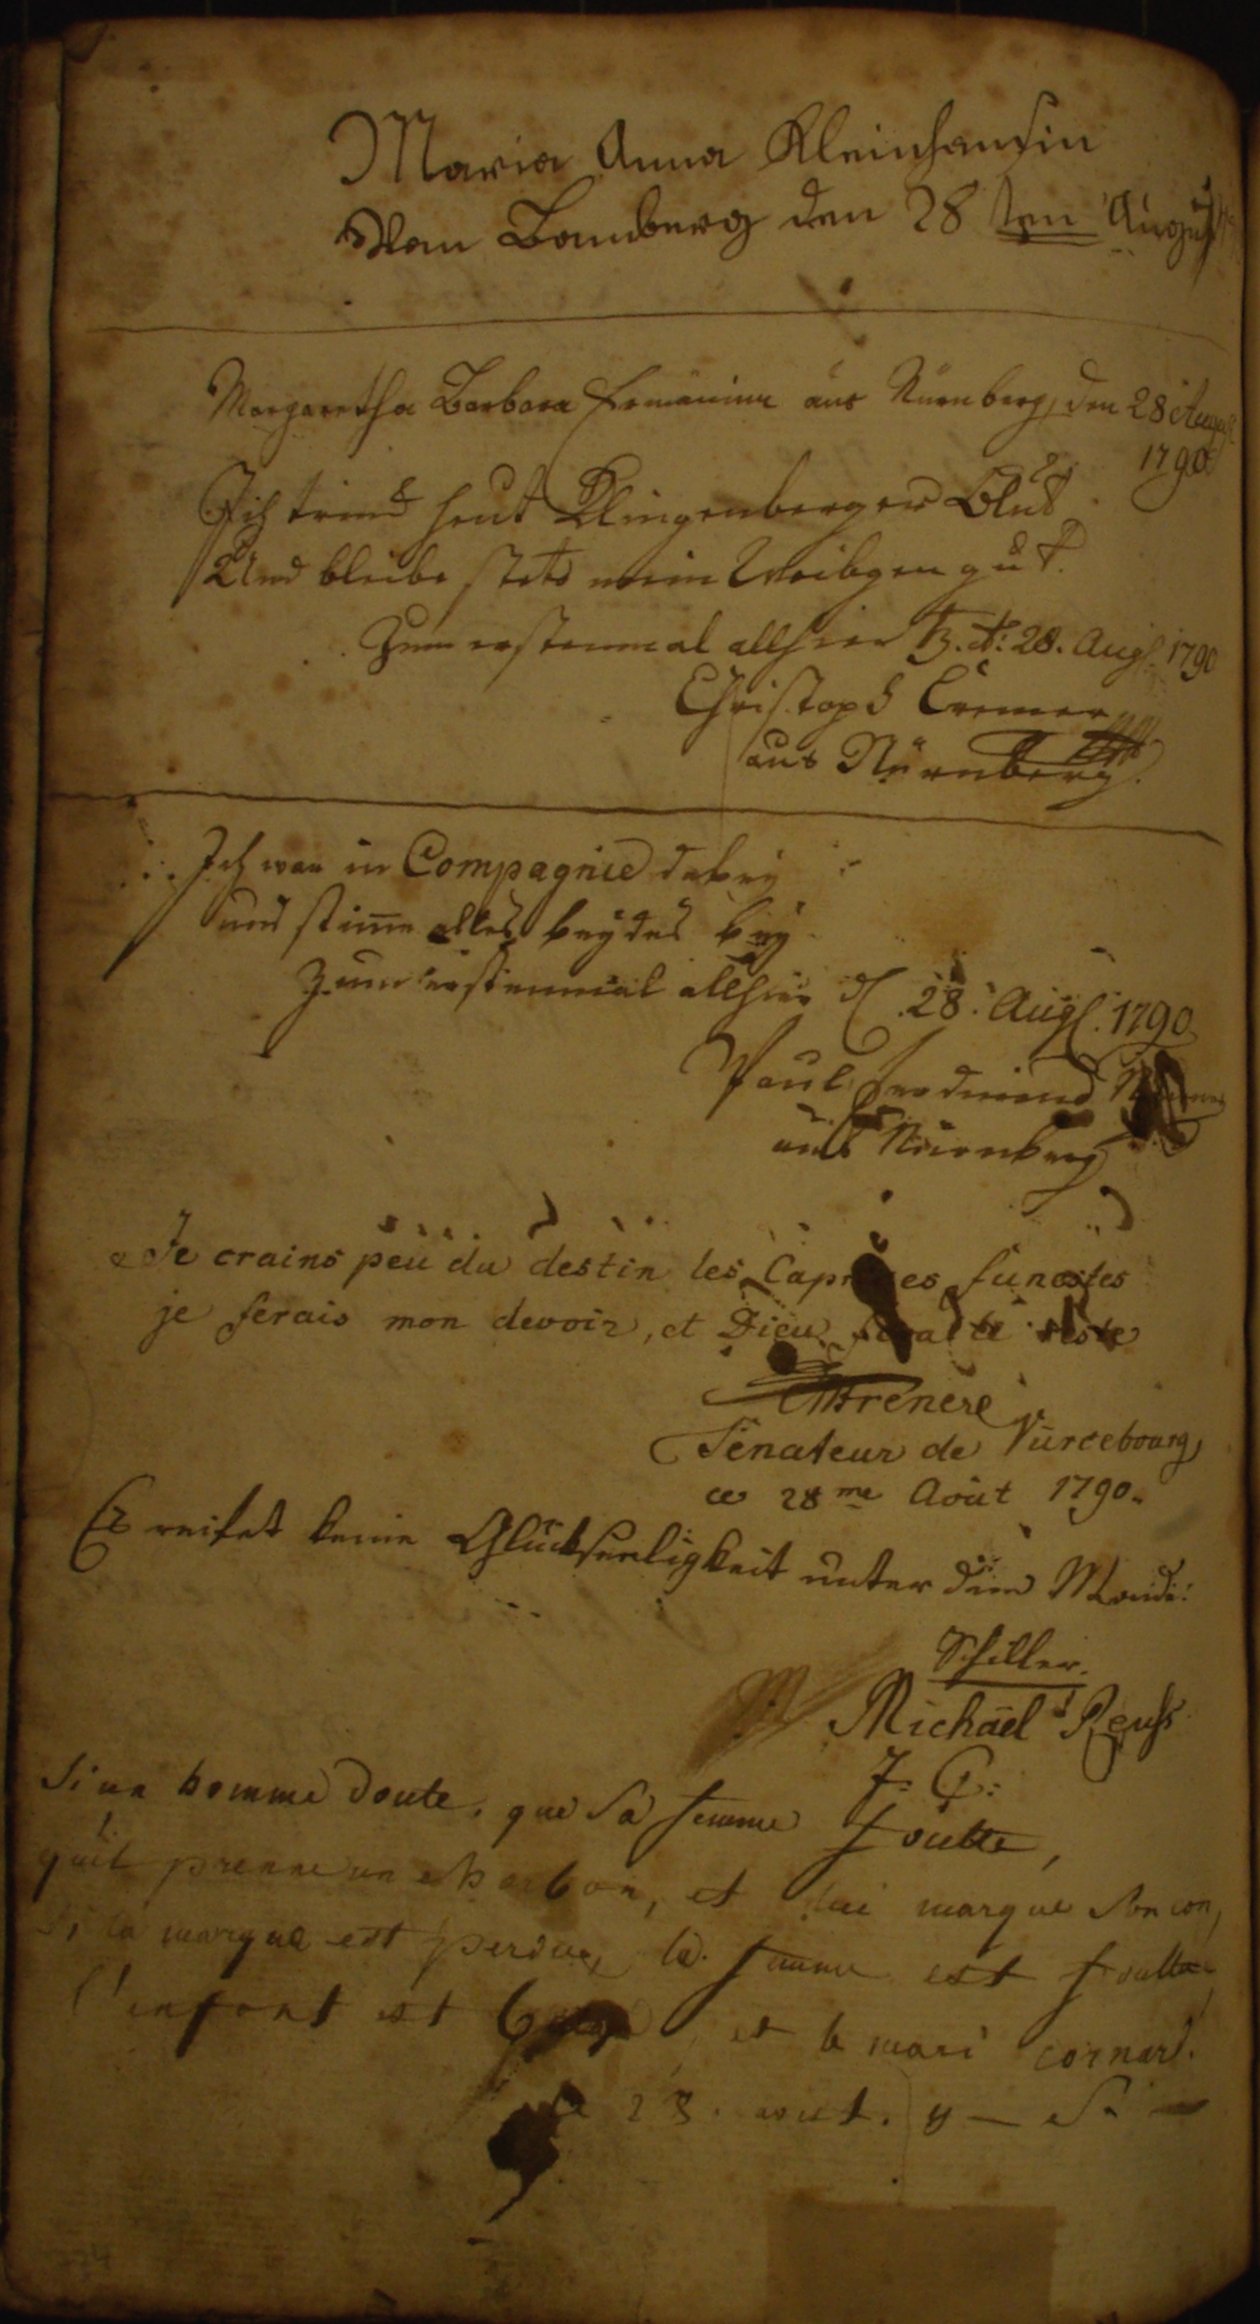 Maria Anna Kleinhansin
Von Bamberg den 28 ten August
Margaretha Barbara aus Nürnberg, den 28 August
1790
Ich trinck heut Klingenberger Blut
Und bleibe stets mein Weibgen gut.
Zum erstenmal allhier d: 28. Aug. 1790
Christoph Cremer
aus Nürnberg.
Ich war in Compagnie dabey
und stimme alles beydes bey
Zum erstenmal allhier d. 28. Aug. 1790
Paul Ferdinand
aus Nürnberg
Je crains peu du destin les Caprices funestes
je ferais mon devoir, et Dieu fera le reste
Senateur de Vurcebourg
ce 28me Août 1790.
Es reifet keine Glückseeligkeit unter dem Monde.
Schiller.
Michaël Reuss
Si un homme doute, que sa femme foutte,
qu'il prenne un charbon, et lui marque son con,
Si la marque est perdue, la femme est foutue
l'enfant est et le mari cornard.